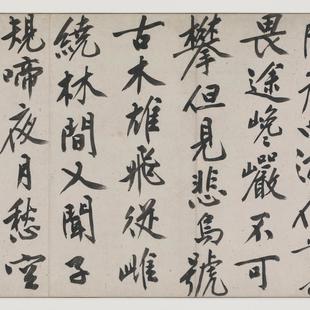 畏途巉巖不可
攀但見悲鳥號
古木雄飛從雌
繞林間又聞子
規啼夜月愁空